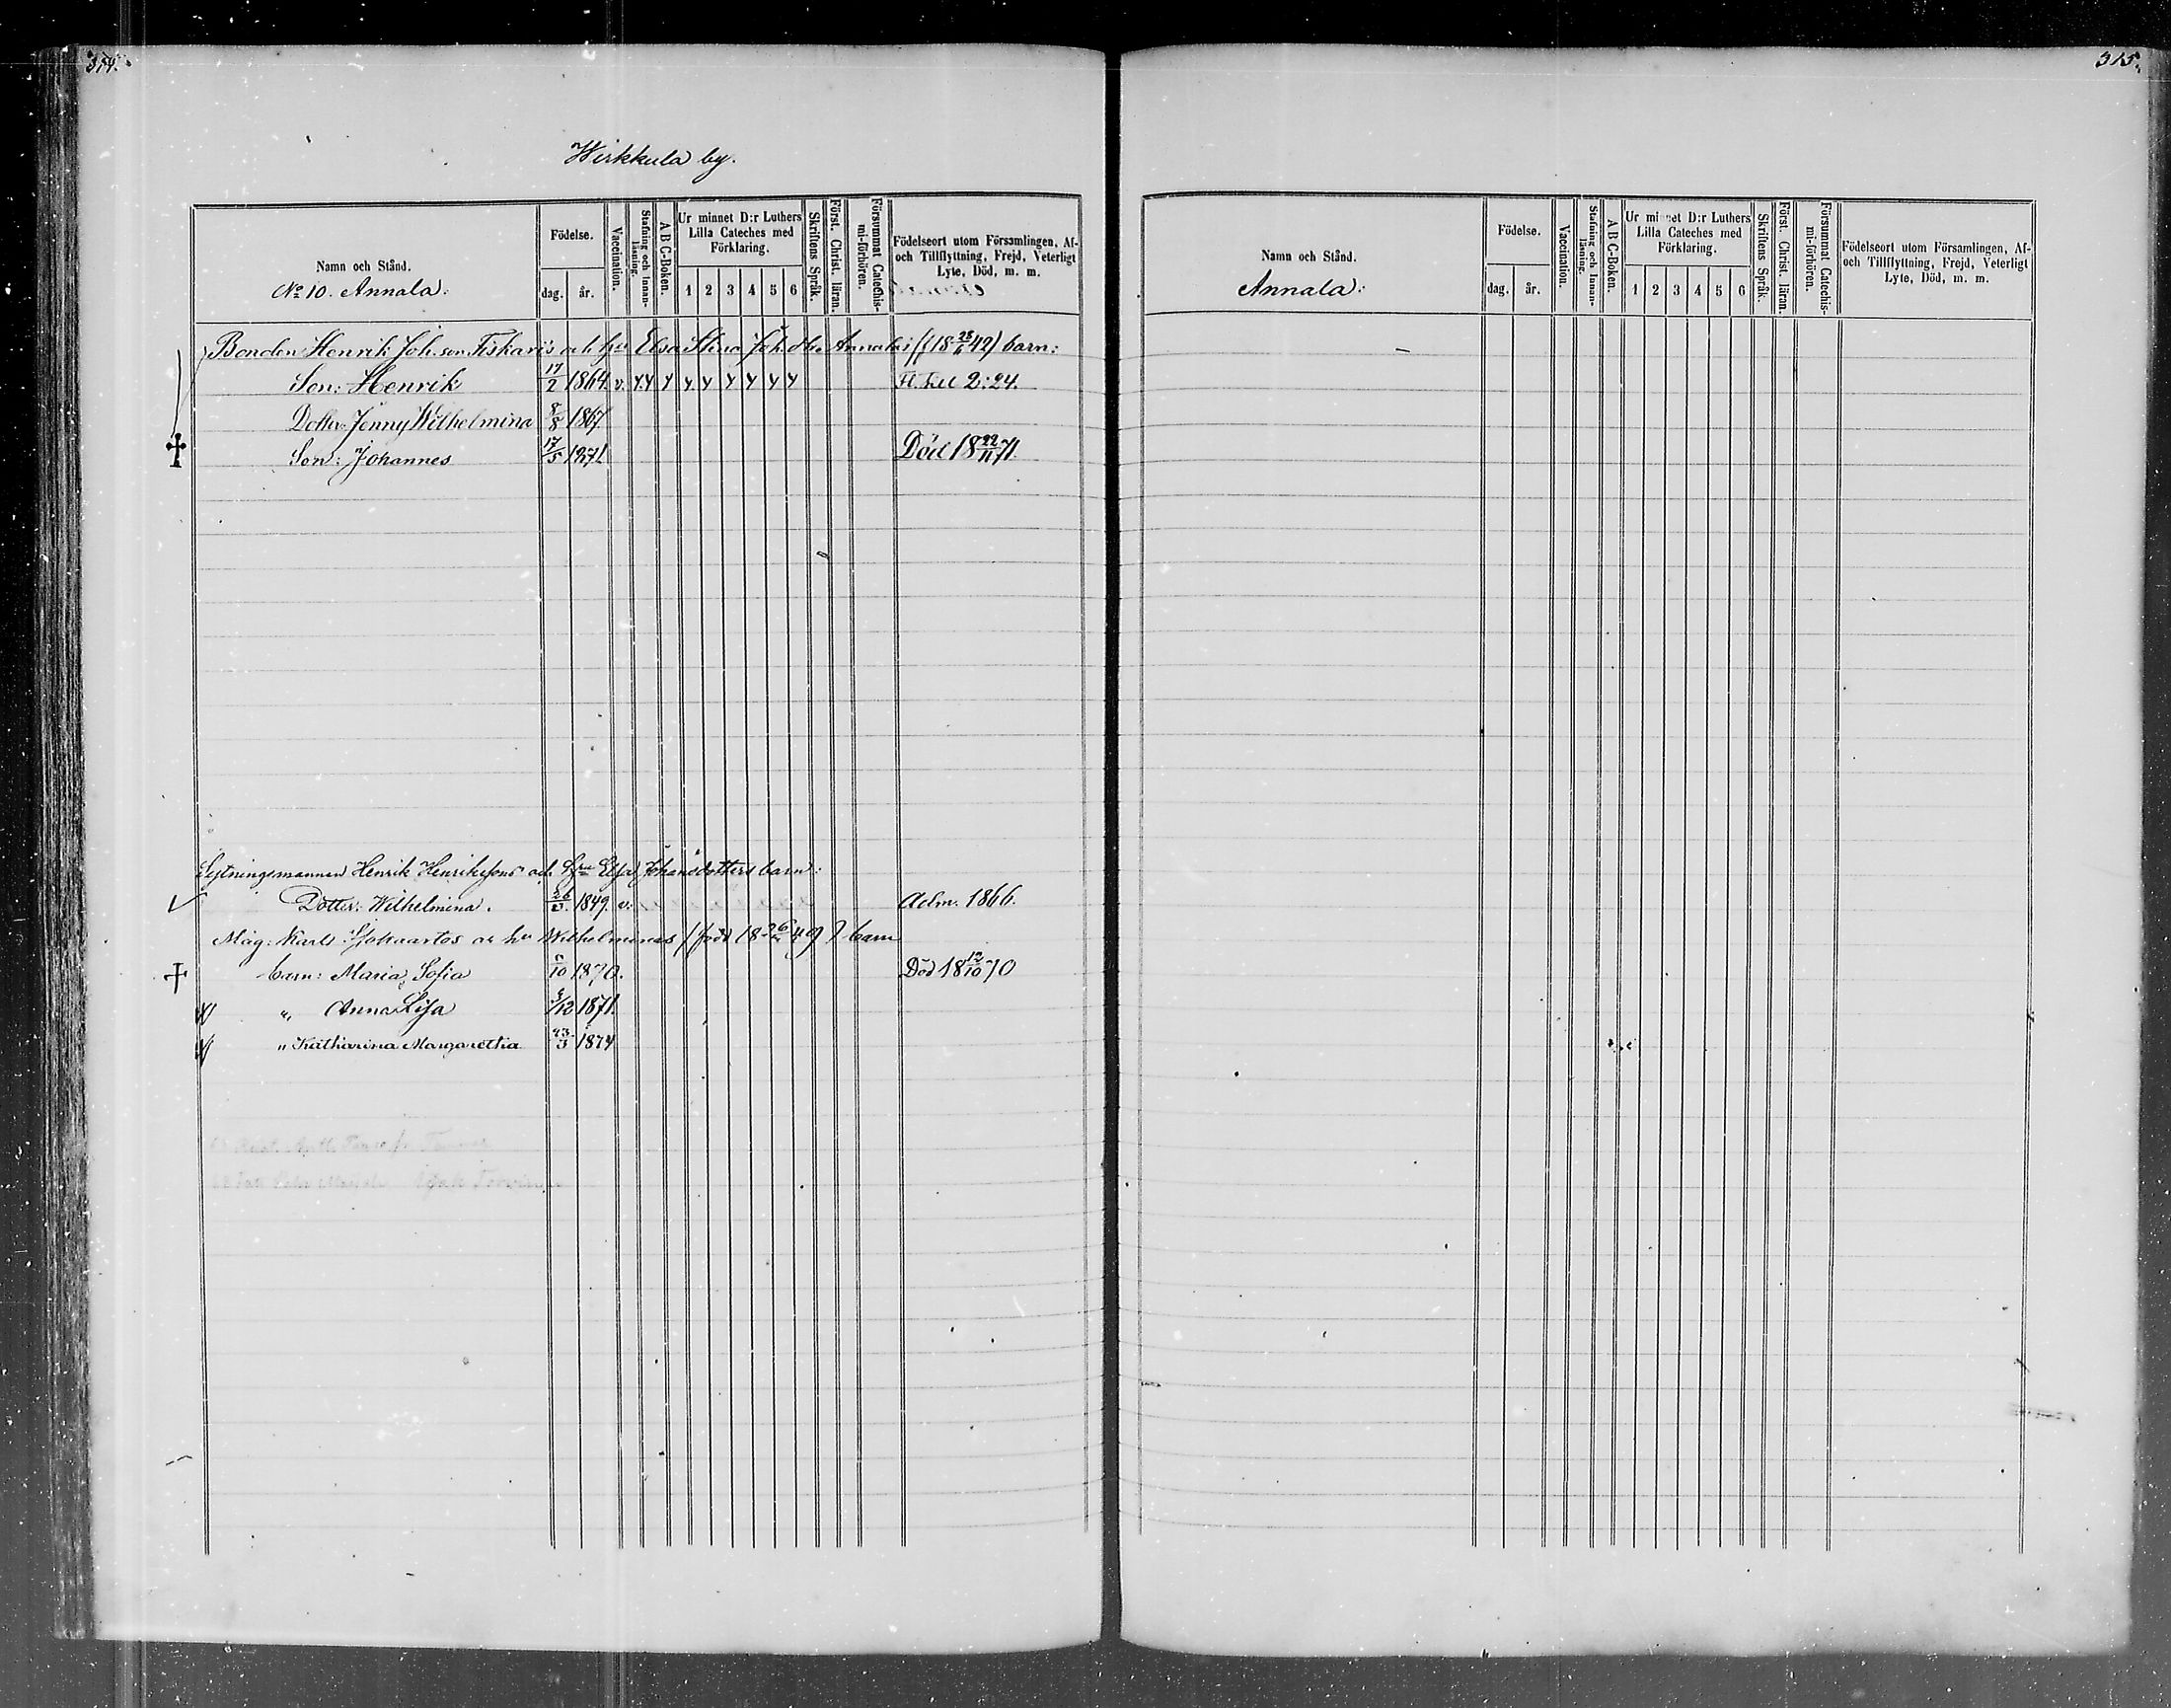 314.
Wirkkula by.
Namn och Stånd.
No 10. Annala:
Födelse.
dag. år.
Vaccination.
Stafning och Innan-läsning.
A B C-Boken.
Ur minnet D:r Luthers Lilla Cateches med Förklaring.
1 2 3 4 5 6
Skriftens Språk.
Först. Christ. läran.
Försummat Catechis-mi-förhören.
Födelseort utom Församlingen, Af- och Tillflyttning, Frejd, Veterligt Lyte, Död, m. m.
Bonden Henrik Joh. son Fiskaris och hu Elsa Stina Joh. dr Annalas (f 18 28/6 42) barn:
Son: Henrik 17/2 1864. v. 2:24.
Dotter: Jenny Wilhelmina 8/8 1867
Son: Johannes 17/5 1871. Död 18 22/11 71.
Sytningsmannen Henrik Henrikssons och Hu Elsa Johansdotters barn:
Dotter: Wilhelmina. 1849. v. Adm. 1866.
Måg: Karl hu Wilhelminas (född 18 49) barn
barn: Maria Sofia /10 1870. Död 18 12/10 70
" Anna Lisa /12 1871.
" Katharina Margaretha 23/3 1874
315.
Namn och Stånd.
Annala:
Födelse.
dag. år.
Vaccination.
Stafning och Innan-läsning.
A B C-Boken.
Ur minnet D:r Luthers Lilla Cateches med Förklaring.
1 2 3 4 5 6
Skriftens Språk.
Först. Christ. läran.
Försummat Catechis-mi-förhören.
Födelseort utom Församlingen, Af- och Tillflyttning, Frejd, Veterligt Lyte, Död, m. m.